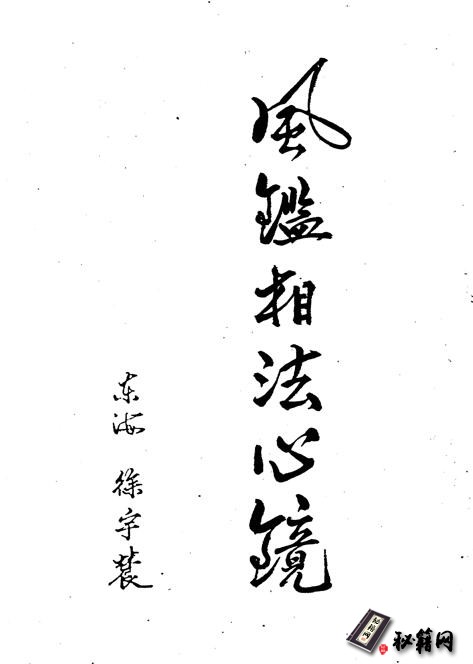 風鑑相法心鏡
东海 徐宇辳
秘籍网